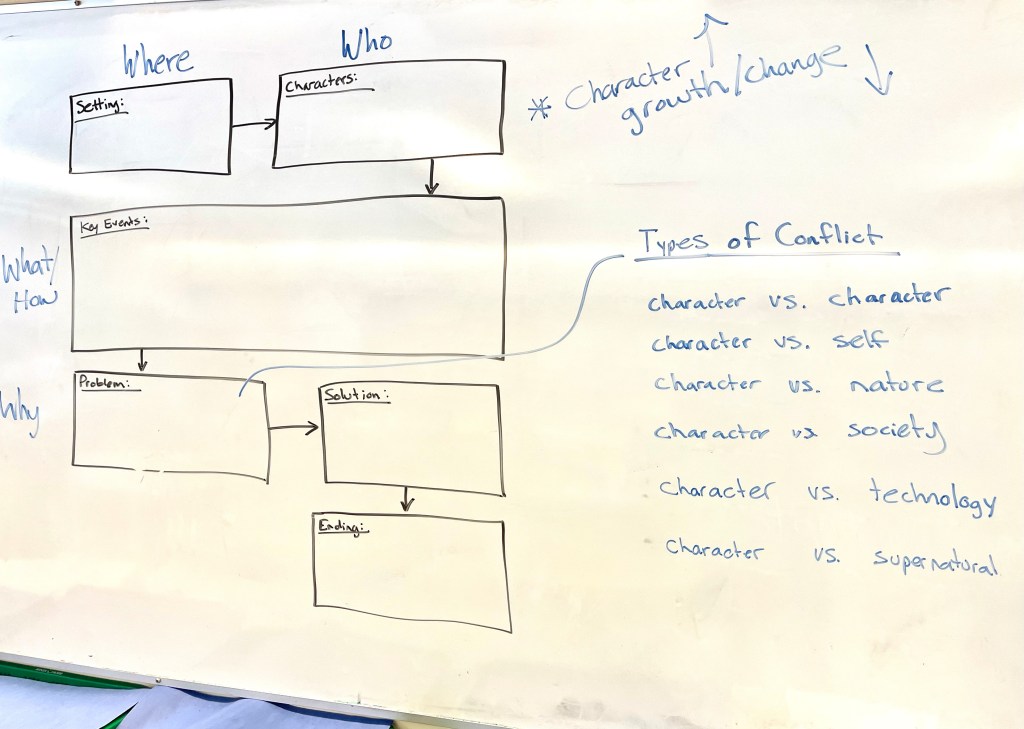 Where
Who
Setting:
Characters:
* Character
growth/change
Key Events:
What/
How
Types of Conflict
character vs. character
character vs. self
character vs. nature
character vs society
character vs. technology
character vs. supernatural
Why
Problem:
Solution:
Ending: